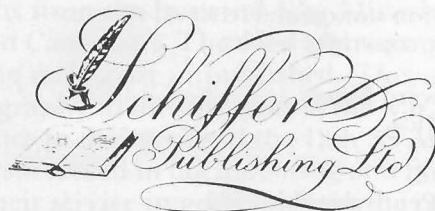 Schiffer
Publishing Ltd